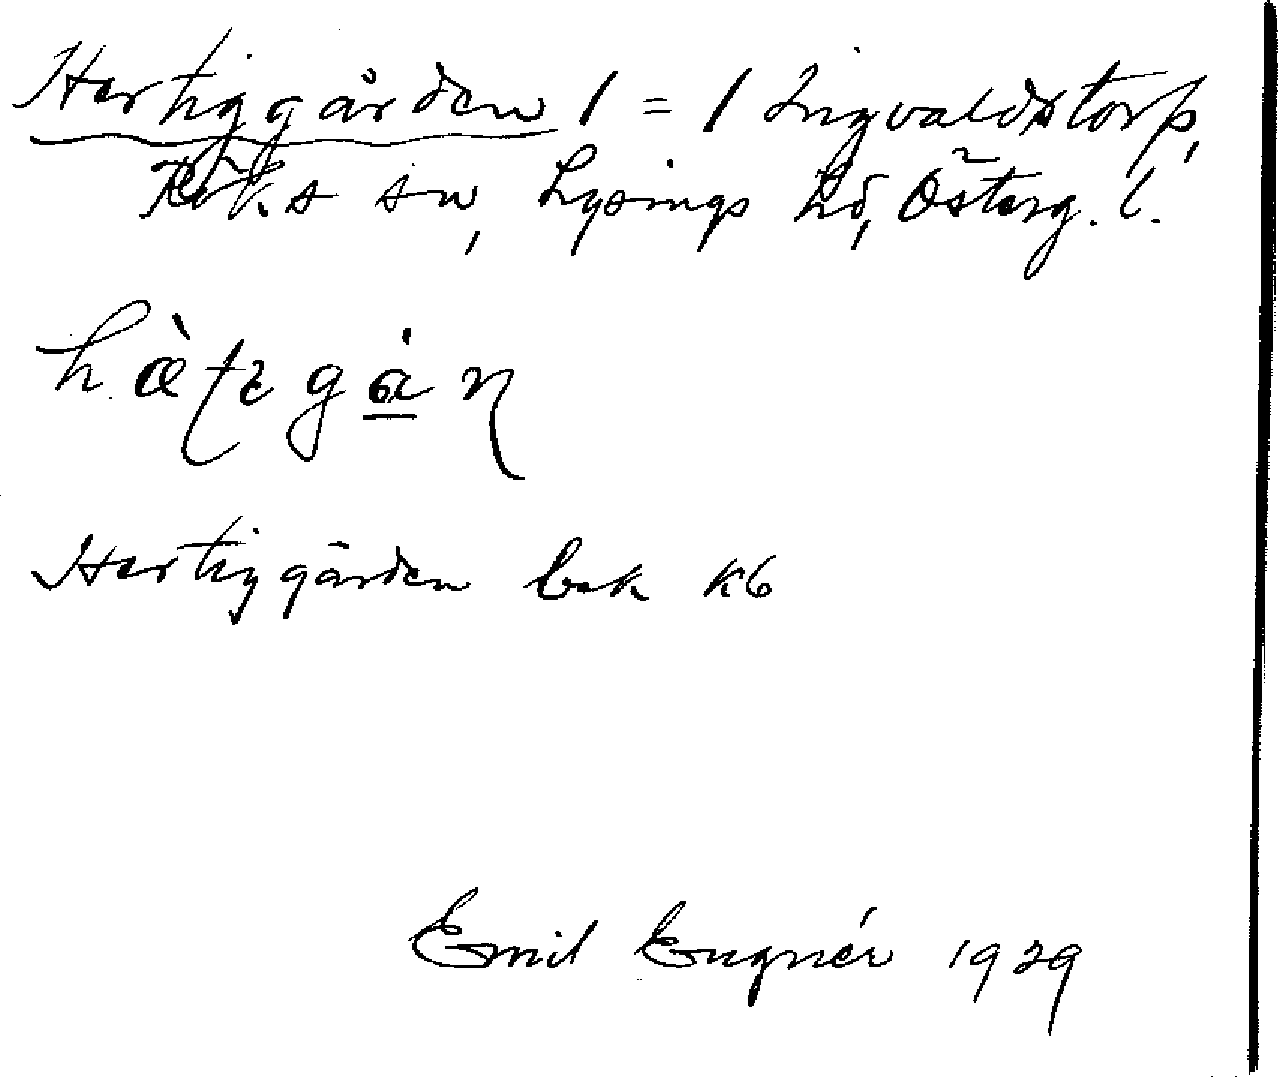 Hertiggården 1 = 1 Ingvaldstorp,
Röks sn, Lysings hd, Österg. l.
Hertiggården bek kb
Emil Engnér 1929